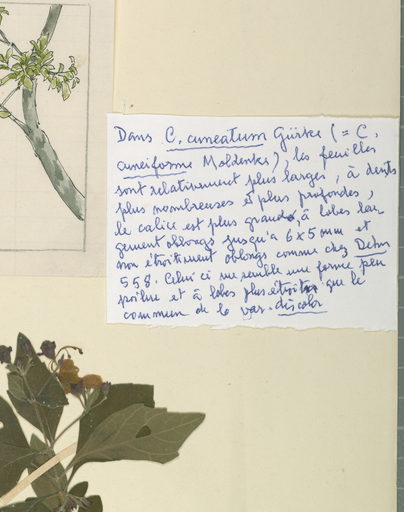 Dans C. cuneatum Gürke (= C.
cuneiforme Moldenke), les feuilles
sont relativement plus larges, à dents
plus nombreuses et plus profondes,
le calice est plus grand, à lobes lar-
gement oblongs jusqu'à 6x5mm et
non étroitement oblongs comme chez
558. Celui ci me semble une forme peu
poilue et à lobes plus étroits que le
commun de la var. discolor